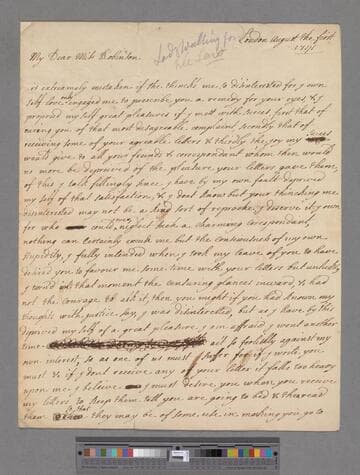 London August the first
1741
My Dear Miss Robinson.
is extreamly mistaken if she thinks me so disinterested for I own
self love engaged me to prescribe you a remidy for your eyes, & I
proposed my self great pleasures if I met with success, first that of
curing you of that most disagreable complaint, secondly that of
receiving some of your agreable letters & thirdly the joy my success
would give to all your freinds & correspondent whom then would
no more be deprived of the pleasure your letters gave them,
of this I told fellingly since I have by my own fault deprived
my self of that satisfaction, & I dont know but your thinking me
disinterested may not be a kind sort of reproche I deserve it I own
for who could neglect such a charming corespondent,
nothing can certainly excuse me but the consciousness of my own
stupidity, I fully intended when I took my leave of you to have
desired you to favour me some time with your letters but unluckily
I could that moment the censuring glances inward, & had
not the courage to ask it, then you might if you had known my
thoughts with justice say, I was disinterested, but as I have by this
deprived my self of a great pleasure I am afraid I wont another
time act so foolishly against my
own interest, so as one of us must suffer for if I wrote you
must & if I dont receive any of your letters it falls too heavy
upon me I beleive I must desire you when you receive
my letters to keep them till you are going to bed & then read
them so that they may be of some use in making you go to